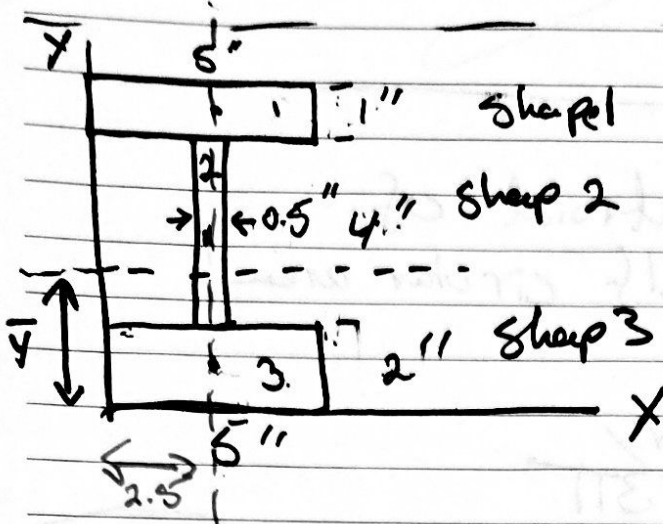 y
5"
1
1" shape1
2
0.5" 4" sheap 2
y
3. 2" sheap 3
X
5"
2.5